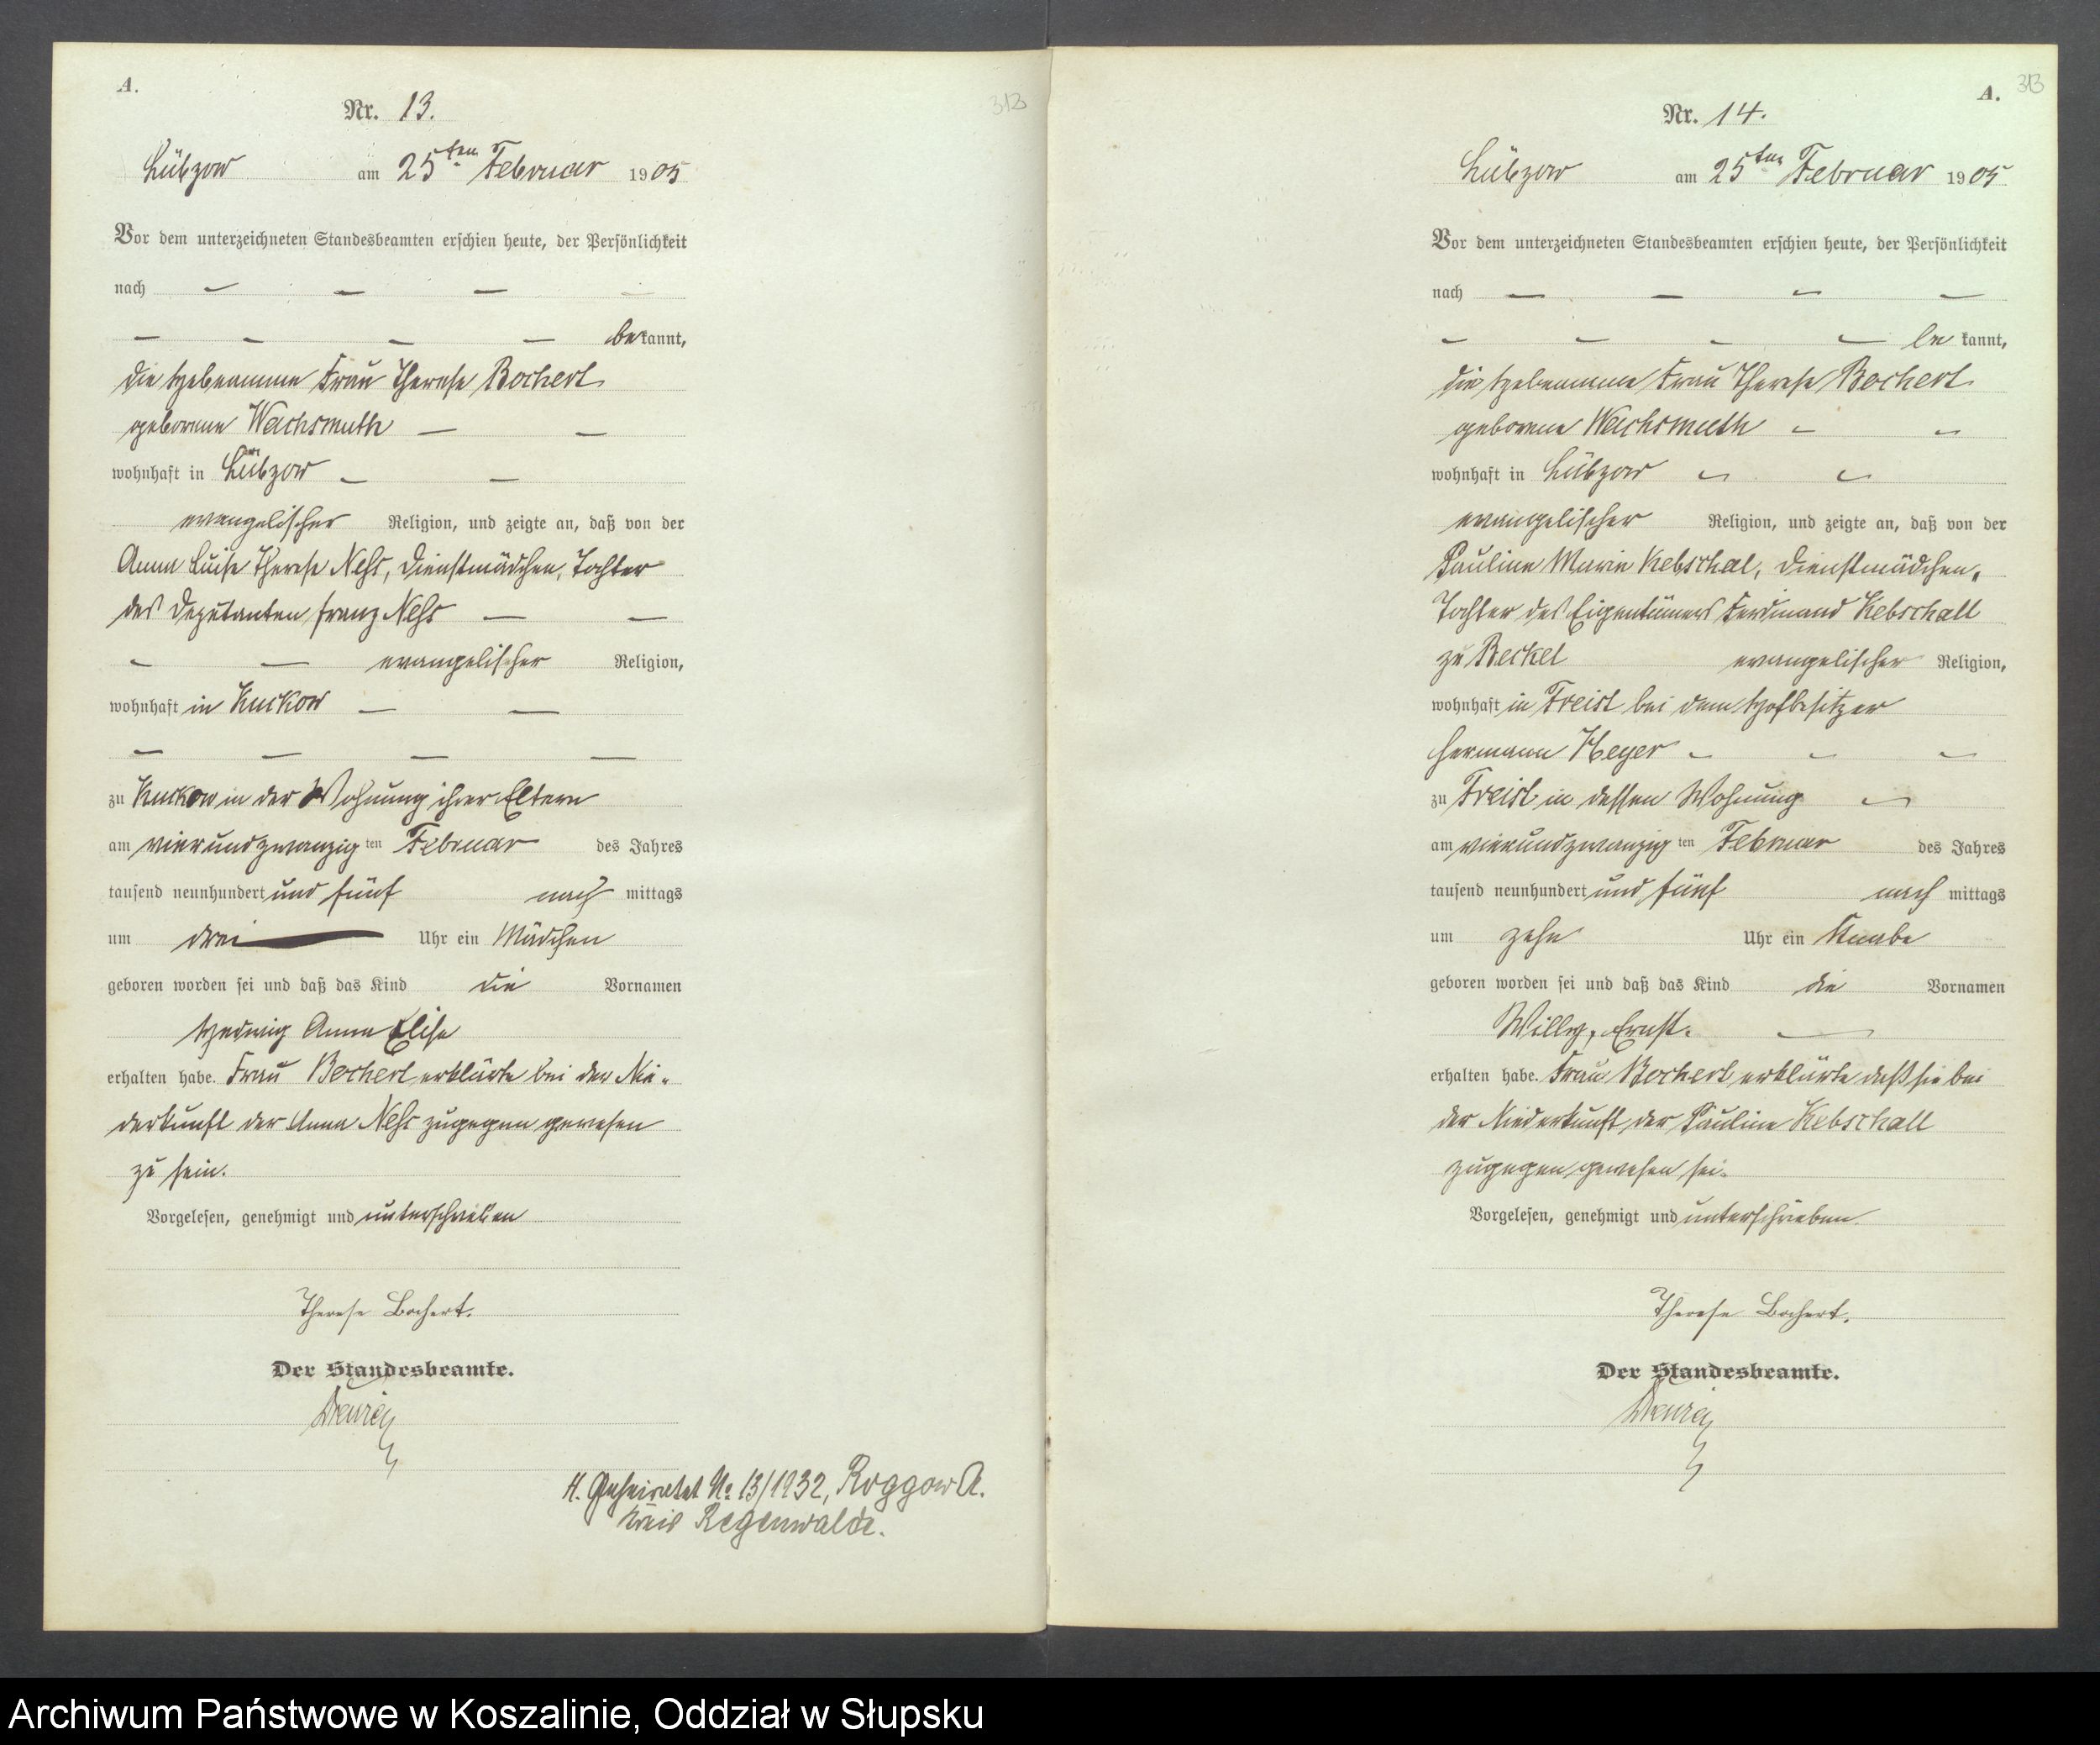 A.
Nr. 13.
313
Lübzow am 25ten Februar 1905
Vor dem unterzeichneten Standesbeamten erschien heute, der Persönlichkeit
nach — — — —
— — — — bekannt,
die Hebeamme Frau Therese Bochert
geborene Wachsmuth — —
wohnhaft in Lübzow — —
evangelischer Religion, und zeigte an, daß von der
Anna Luise Therese Nehs, Dienstmädchen, Tochter
des Deputanten Franz Nehs — —
— — evangelischer Religion,
wohnhaft in Kuckow — —
— — — —
zu Kuckow in der Wohnung ihrer Eltern
am vierundzwanzig ten Februar des Jahres
tausend neunhundert und fünf nach mittags
um drei — Uhr ein Mädchen
geboren worden sei und daß das Kind die Vornamen
Hedwig Anna Elise
erhalten habe. Frau Bochert erklärte bei der Nie-
derkunft der Anna Nehs zugegen gewesen
zu sein.
Vorgelesen, genehmigt und unterschrieben
Therese Bochert.
Der Standesbeamte.
H. Geheiratet No 13/1932, Roggow A.
Kreis Regenwalde.
A.
313
Nr. 14.
Lübzow am 25ten Februar 1905
Vor dem unterzeichneten Standesbeamten erschien heute, der Persönlichkeit
nach — — — —
— — — — be kannt,
die Hebeamme Frau Therese Bochert
geborene Wachsmuth — —
wohnhaft in Lübzow — —
evangelischer Religion, und zeigte an, daß von der
Pauline Marie Kebschal, Dienstmädchen,
Tochter des Eigentümers Ferdinand Kebschall
zu Beckel evangelischer Religion,
wohnhaft in Freist bei dem Hofbesitzer
Hermann Heyer — — —
zu Freist in dessen Wohnung —
am vierundzwanzig ten Februar des Jahres
tausend neunhundert und fünf nach mittags
um zehn Uhr ein Knabe
geboren worden sei und daß das Kind die Vornamen
Willy, Ernst. —
erhalten habe. Frau Bochert erklärte daß sie bei
der Niederkunft der Pauline Kebschall
zugegen gewesen sei.
Vorgelesen, genehmigt und unterschrieben.
Therese Bochert.
Der Standesbeamte.
Archiwum Państwowe w Koszalinie, Oddział w Słupsku